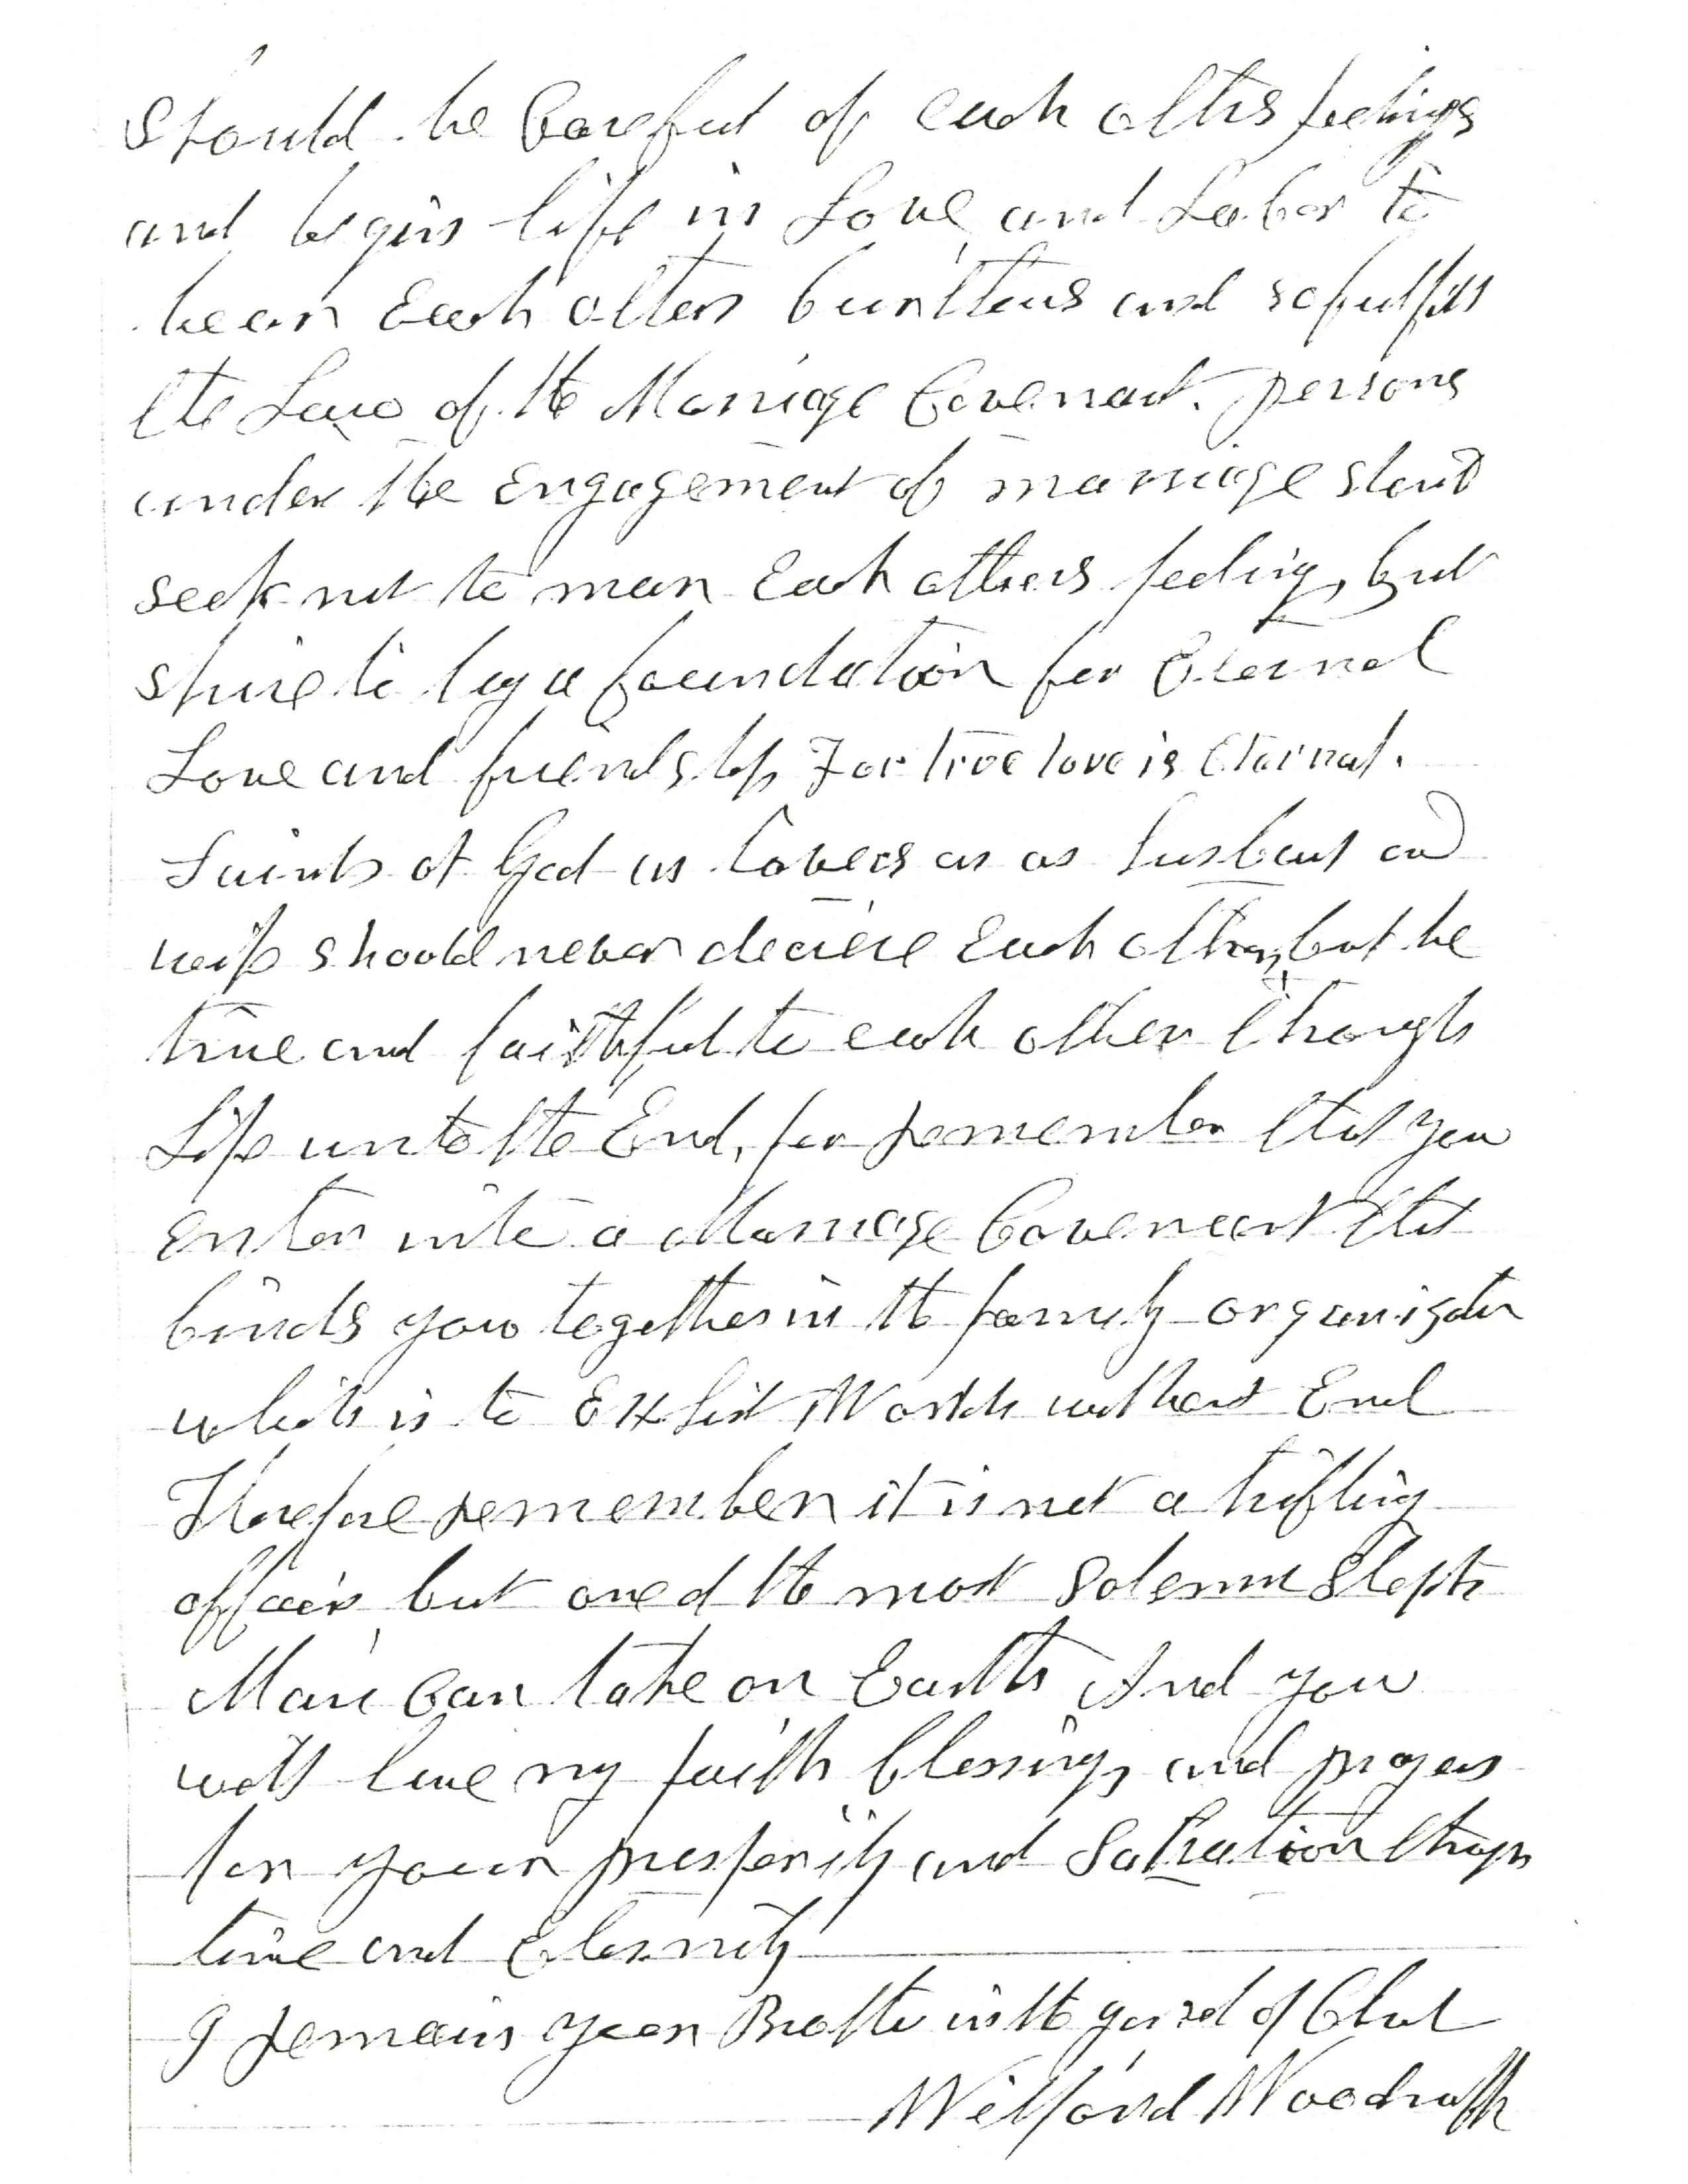 should be Careful of each others feelings
and begin life in Love and Labor to
bear Each others burthens and so fulfill
the Law of the Marriage Covenant. persons
under the Engagement of marriage should
seek not to marr Each others feelings, but
strive to lay a foundation for Eternal
Love and friendship For true love is Eternal.
Saints of God as Lovers or as husband and
wife should never decieve Each other, but be
true and faithful to each other through
Life unto the End, for remember that you
enter into a Marriage Covenant that
binds you together in the family organization
which is to Exhist Worlds without End
Therefore remember it is not a trifling
affair but one of the most Solemn Steps
Man Can take on Earth And you
will have my faith blessings and prayers
for your prosperity and Salvation through
time and Eternity
I remain your Brother in the gospel of Christ
Wilford Woodruff